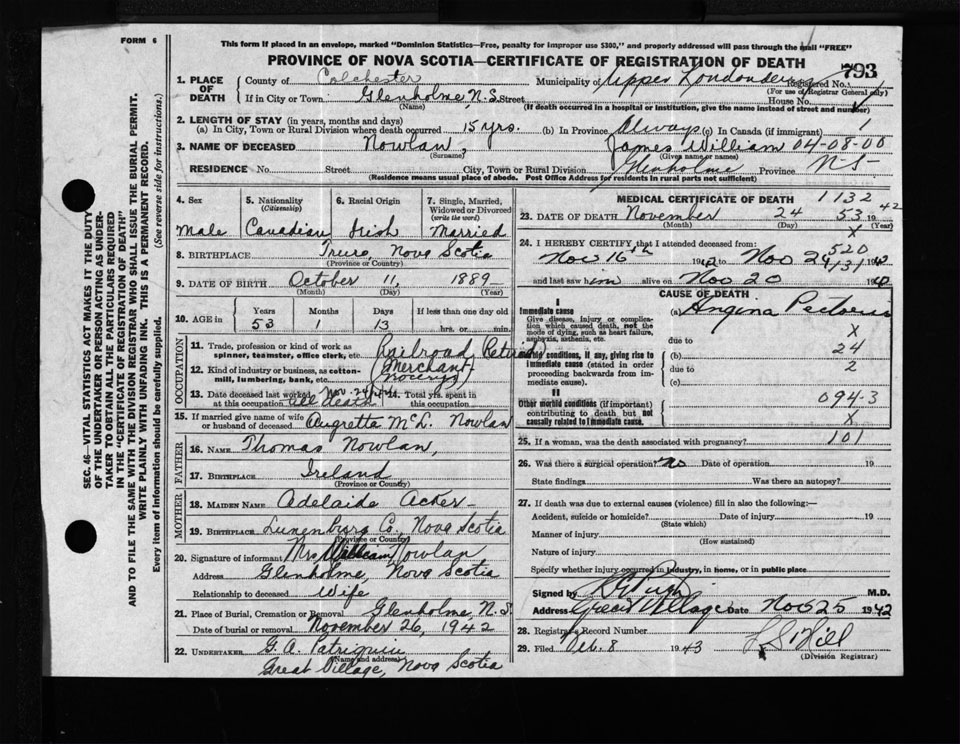 FORM 6
This form if placed in an envelope, marked "Dominion Statistics—Free, penalty for improper use $300," and properly addressed will pass through the mail "FREE"
PROVINCE OF NOVA SCOTIA—CERTIFICATE OF REGISTRATION OF DEATH
793
1. PLACE OF DEATH County of Colchester Municipality of Upper Londonderry Registered No.
(For use of Registrar General only)
If in City or Town Glenholme N.S. Street House No.
(Name) (If death occurred in a hospital or institution, give the name instead of street and number)
2. LENGTH OF STAY (in years, months and days)
(a) In City, Town or Rural Division where death occurred 15 yrs. (b) In Province Always (c) In Canada (if immigrant) 1
3. NAME OF DECEASED Nowlan, James William 04-08-00
(Surname) (Given name or names)
RESIDENCE No. Street City, Town or Rural Division Glenholme Province N-S-
(Residence means usual place of abode. Post Office Address for residents in rural parts not sufficient)
4. Sex 5. Nationality (Citizenship) 6. Racial Origin 7. Single, Married, Widowed or Divorced (write the word)
Male Canadian Irish Married
8. BIRTHPLACE Truro, Nova Scotia
(Province or Country)
9. DATE OF BIRTH October 11, 1889
(Month) (Day) (Year)
10. AGE in Years Months Days If less than one day old
53 1 13 hrs. or min.
OCCUPATION
11. Trade, profession or kind of work as spinner, teamster, office clerk, etc. Railroad (Retired)
12. Kind of industry or business, as cotton-mill, lumbering, bank, etc. (Merchant
13. Date deceased last worked at this occupation Nov-24/42 till death 14. Total yrs. spent in this occupation
15. If married give name of wife or husband of deceased Augretta McL. Nowlan
FATHER
16. NAME Thomas Nowlan,
17. BIRTHPLACE Ireland
(Province or Country)
MOTHER
18. MAIDEN NAME Adelaide Acker
19. BIRTHPLACE Lunenburg Co., Nova Scotia
(Province or Country)
20. Signature of informant Mrs William Nowlan
Address Glenholme, Nova Scotia
Relationship to deceased Wife
21. Place of Burial, Cremation or Removal Glenholme, N.S.
Date of burial or removal November 26, 1942
22. UNDERTAKER G. A. Patriquin
(Name and address)
Great Village, Nova Scotia
MEDICAL CERTIFICATE OF DEATH 1132
23. DATE OF DEATH November 24 53 1942
(Month) (Day) (Year)
X
24. I HEREBY CERTIFY that I attended deceased from: 520
Nov 16th 1942 to Nov 24 131 1942
and last saw him alive on Nov 20 19
CAUSE OF DEATH
I
Immediate cause (a) Angina Pectoris
Give disease, injury or complication which caused death, not the mode of dying, such as heart failure, asphyxia, asthenia, etc.
X
due to
24
Morbid conditions, if any, giving rise to immediate cause (stated in order proceeding backwards from immediate cause). (b)
due to 2
(c)
II
094-3
Other morbid conditions (if important) contributing to death but not causally related to immediate cause.
X
101
25. If a woman, was the death associated with pregnancy?
26. Was there a surgical operation? no Date of operation 19
State findings Was there an autopsy?
27. If death was due to external causes (violence) fill in also the following:—
Accident, suicide or homicide? Date of injury 19
(State which)
Manner of injury
(How sustained)
Nature of injury
Specify whether injury occurred in industry, in home, or in public place
Signed by M.D.
Address Great Village Date Nov 25 1942
28. Registrar's Record Number
29. Filed Feb. 8 1943 Hill
(Division Registrar)
SEC. 46—VITAL STATISTICS ACT MAKES IT THE DUTY OF THE UNDERTAKER OR PERSON ACTING AS UNDERTAKER TO OBTAIN ALL THE PARTICULARS REQUIRED IN THE "CERTIFICATE OF REGISTRATION OF DEATH" AND TO FILE THE SAME WITH THE DIVISION REGISTRAR WHO SHALL ISSUE THE BURIAL PERMIT.
WRITE PLAINLY WITH UNFADING INK. THIS IS A PERMANENT RECORD.
Every item of information should be carefully supplied. (See reverse side for instructions.)